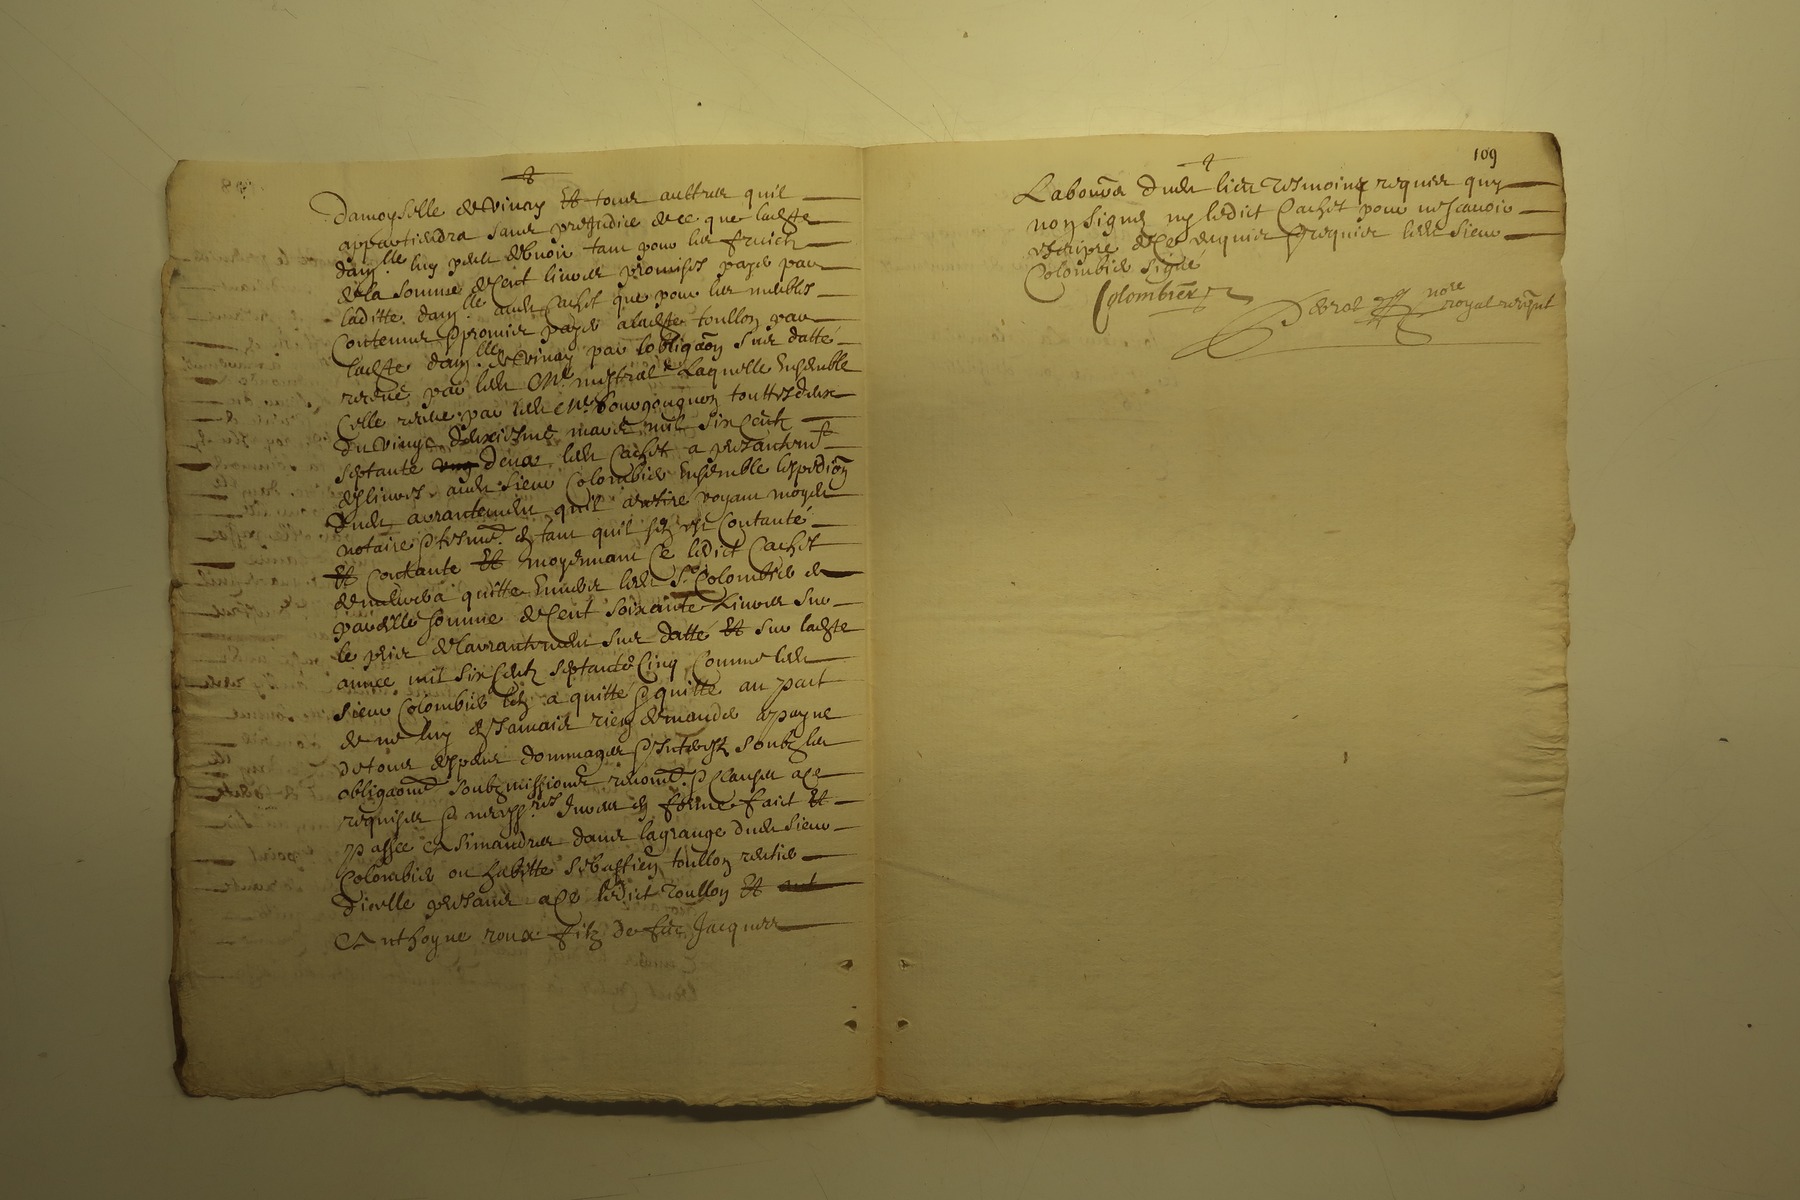 damoyselle de Vinay Et tous aultres quil
appartiendra sans prejudice de ce que ladtte
damlle luy peult debvoir tant pour les fruictz
de la somme de cent livres promises payer par
laditte damlle audt Cachet que pour les meubles
contenus promis payer a ladtte toullon par
ladtte damlle de Vinay par lobligaon sus datté
receue par ledt Me mistral Laquelle Ensemble
celle receue par ledt Me bourgongnon touttes deux
du vingt deuxiesme mars mil six centz
septante deux ledt Cachet a presantemt
deslivres audt sieur Colombier Ensemble lexpedion
dudt arrantement quil a retiré voyant moydt
notaire tesmo. et tant quil sen est Contanté
Et Contante Et moyennant Ce ledict Cachet
demeurera quitte Envers ledt Sr Colombier de
pareille somme de Cent soixante Livres sur
le prix de larrantement sus datté Et sur ladtte
année mil six Centz septante Cinq Comme ledt
sieur Colombier len a quitté quitte au pact
de ne luy en jamais rien demander a payne
de tous despens dommages Intherestz soubz les
obligaons soubzmissions renons clauses a ce
requises necessres Jurées en forme faict Et
passé a Simandres dans la grange dudt sieur
Colombier ou habitte Sebastien toullon rentier
dicelle presans a ce ledict toullon Et
Anthoyne roux filz de feu Jacques
109
Laboureur dudt lieu tesmoings requis quy
non signé ny ledict Cachet pour ne scavoir
escripre de ce enquis requis ledt sieur
Colombier signé
Colombier
nore
royal recepvt